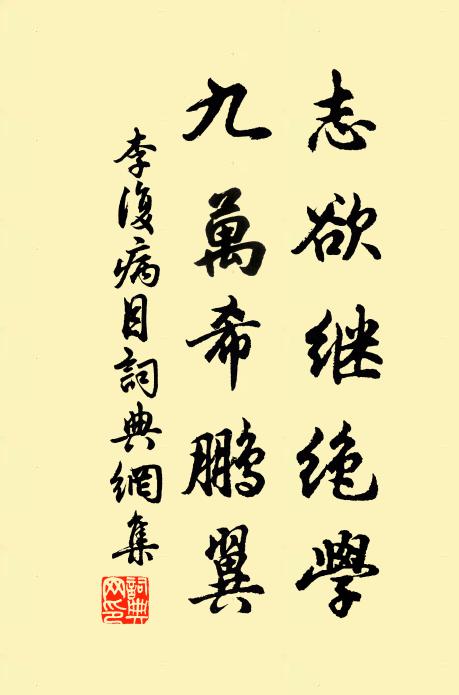 志欲继绝學
九萬希鹏翼
李復病目詞典網集
詞典网印